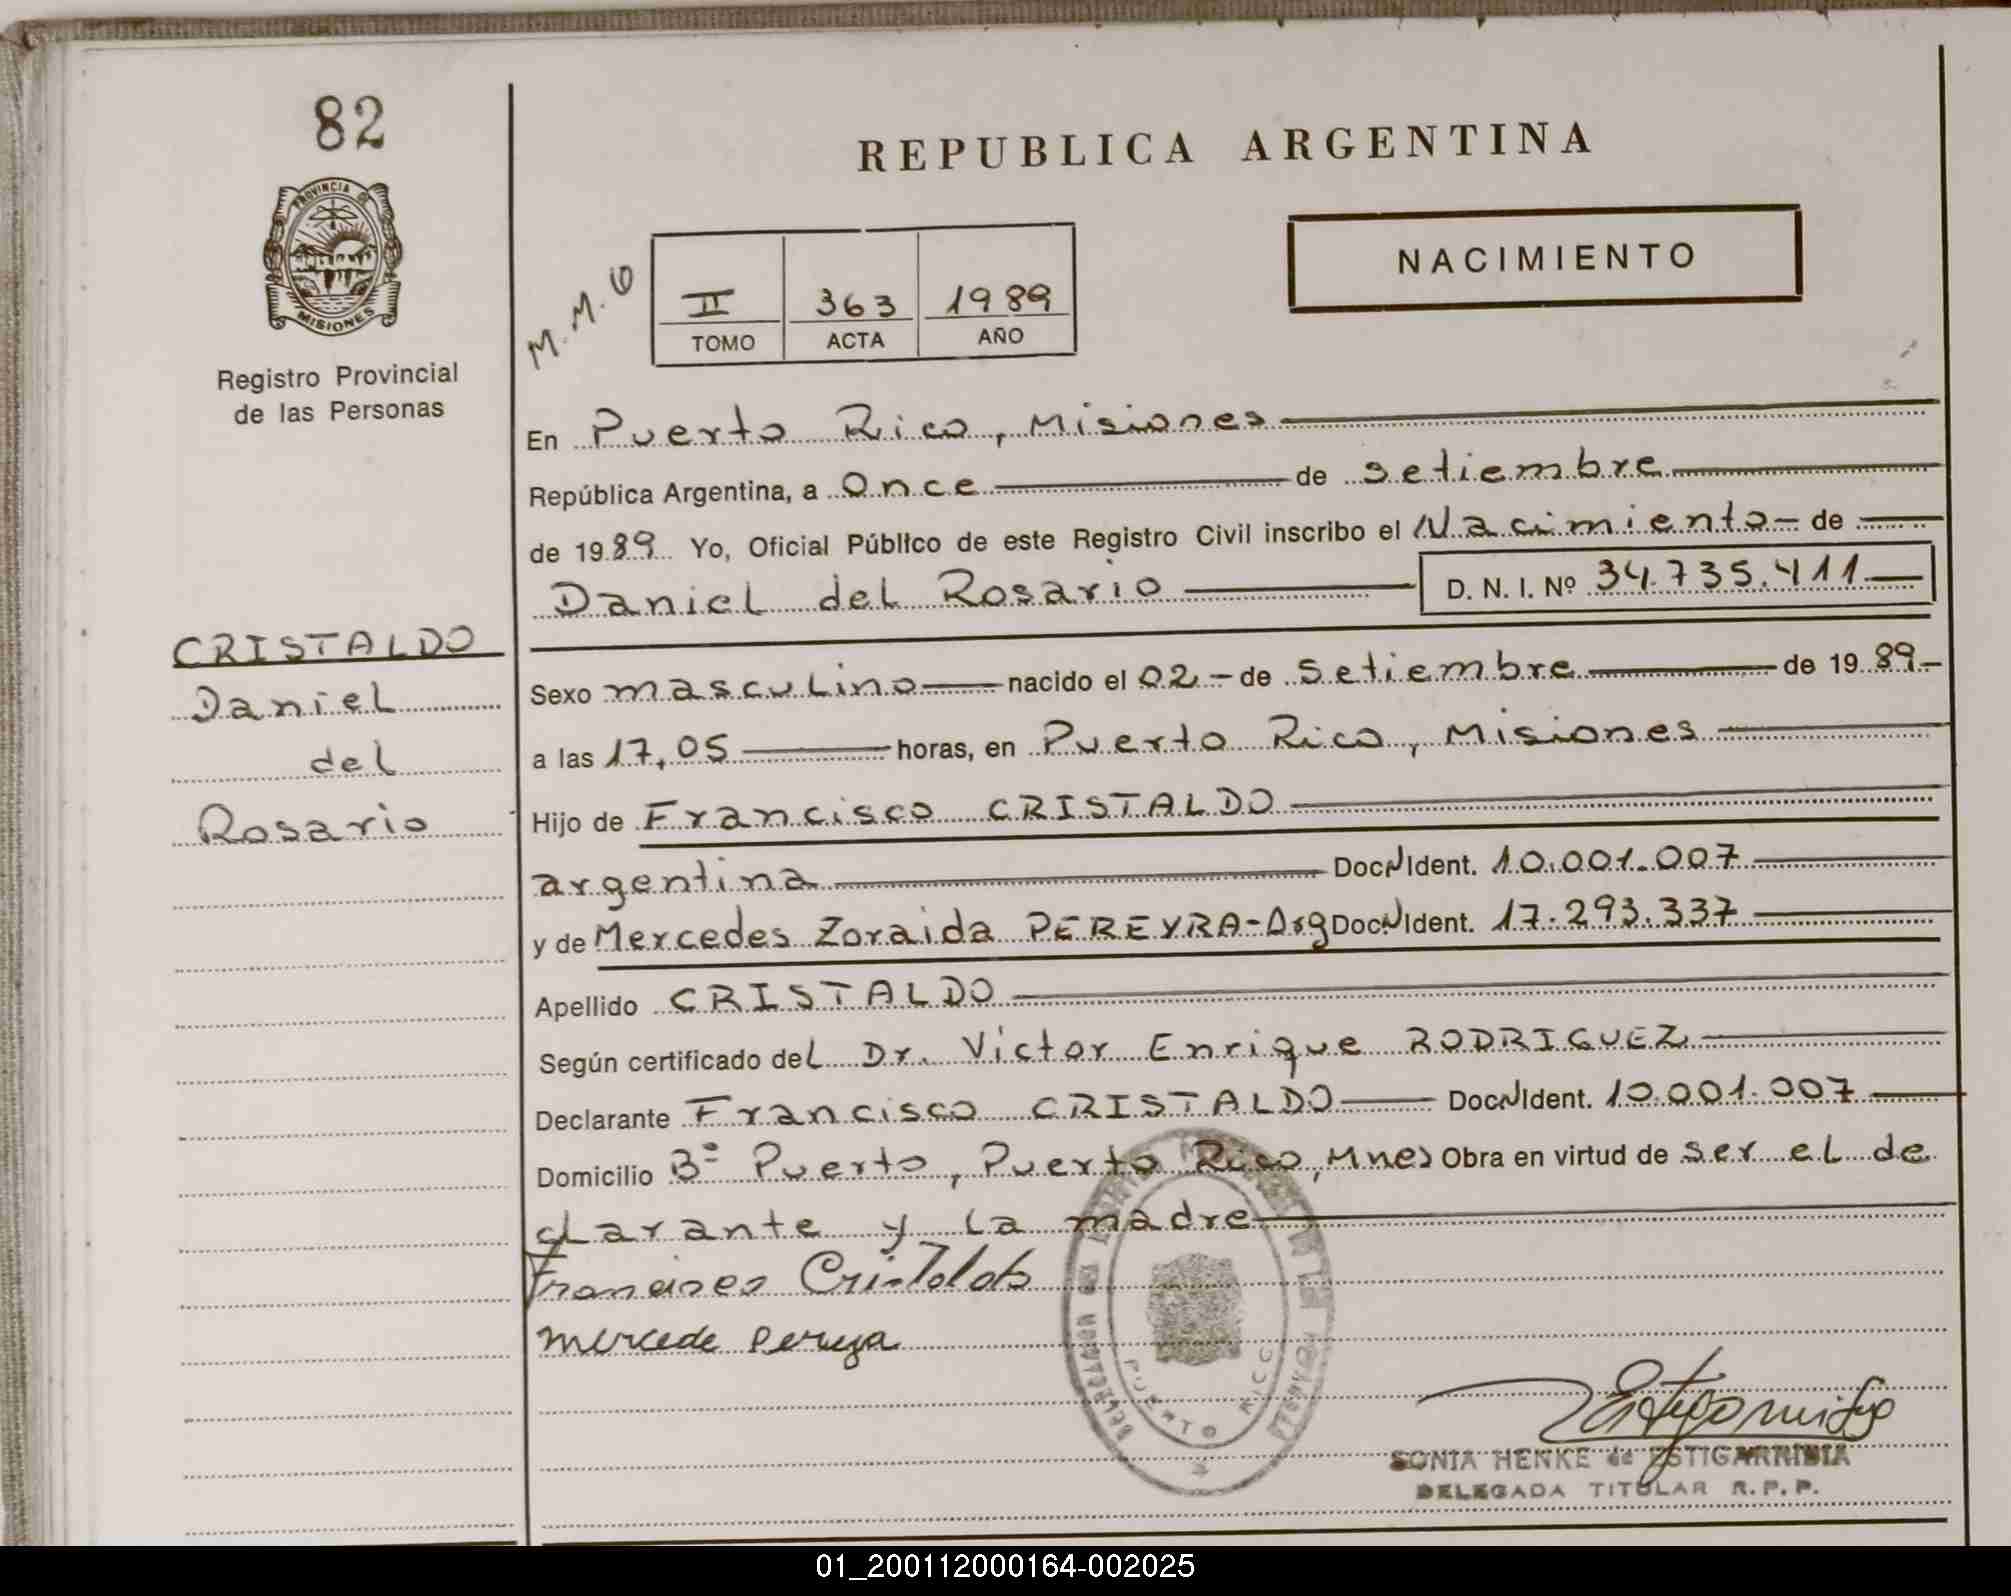 82
PROVINCIA DE
MISIONES
Registro Provincial
de las Personas
REPUBLICA ARGENTINA
NACIMIENTO
M.M.
II 363 1989
TOMO ACTA AÑO
En Puerto Rico, Misiones
República Argentina, a Once de setiembre
de 1989 Yo, Oficial Público de este Registro Civil inscribo el Nacimiento de
Daniel del Rosario D. N. I. Nº 34.735.411
CRISTALDO
Daniel
del
Rosario
Sexo masculino nacido el 02 de Setiembre de 1989
a las 17,05 horas, en Puerto Rico, Misiones
Hijo de Francisco CRISTALDO
argentina DocN Ident. 10.001.007
y de Mercedes Zoraida PEREYRA-Arg DocN Ident. 17.293.337
Apellido CRISTALDO
Según certificado del Dr. Victor Enrique RODRIGUEZ
Declarante Francisco CRISTALDO DocN Ident. 10.001.007
Domicilio Bº Puerto, Puerto Rico, Mnes Obra en virtud de ser el de
clarante y la madre
Francisco Cristaldo
mercede pereya
PUERTO RICO
SONIA HENKE de ESTIGARRIBIA
DELEGADA TITULAR R.P.P.
01_200112000164-002025